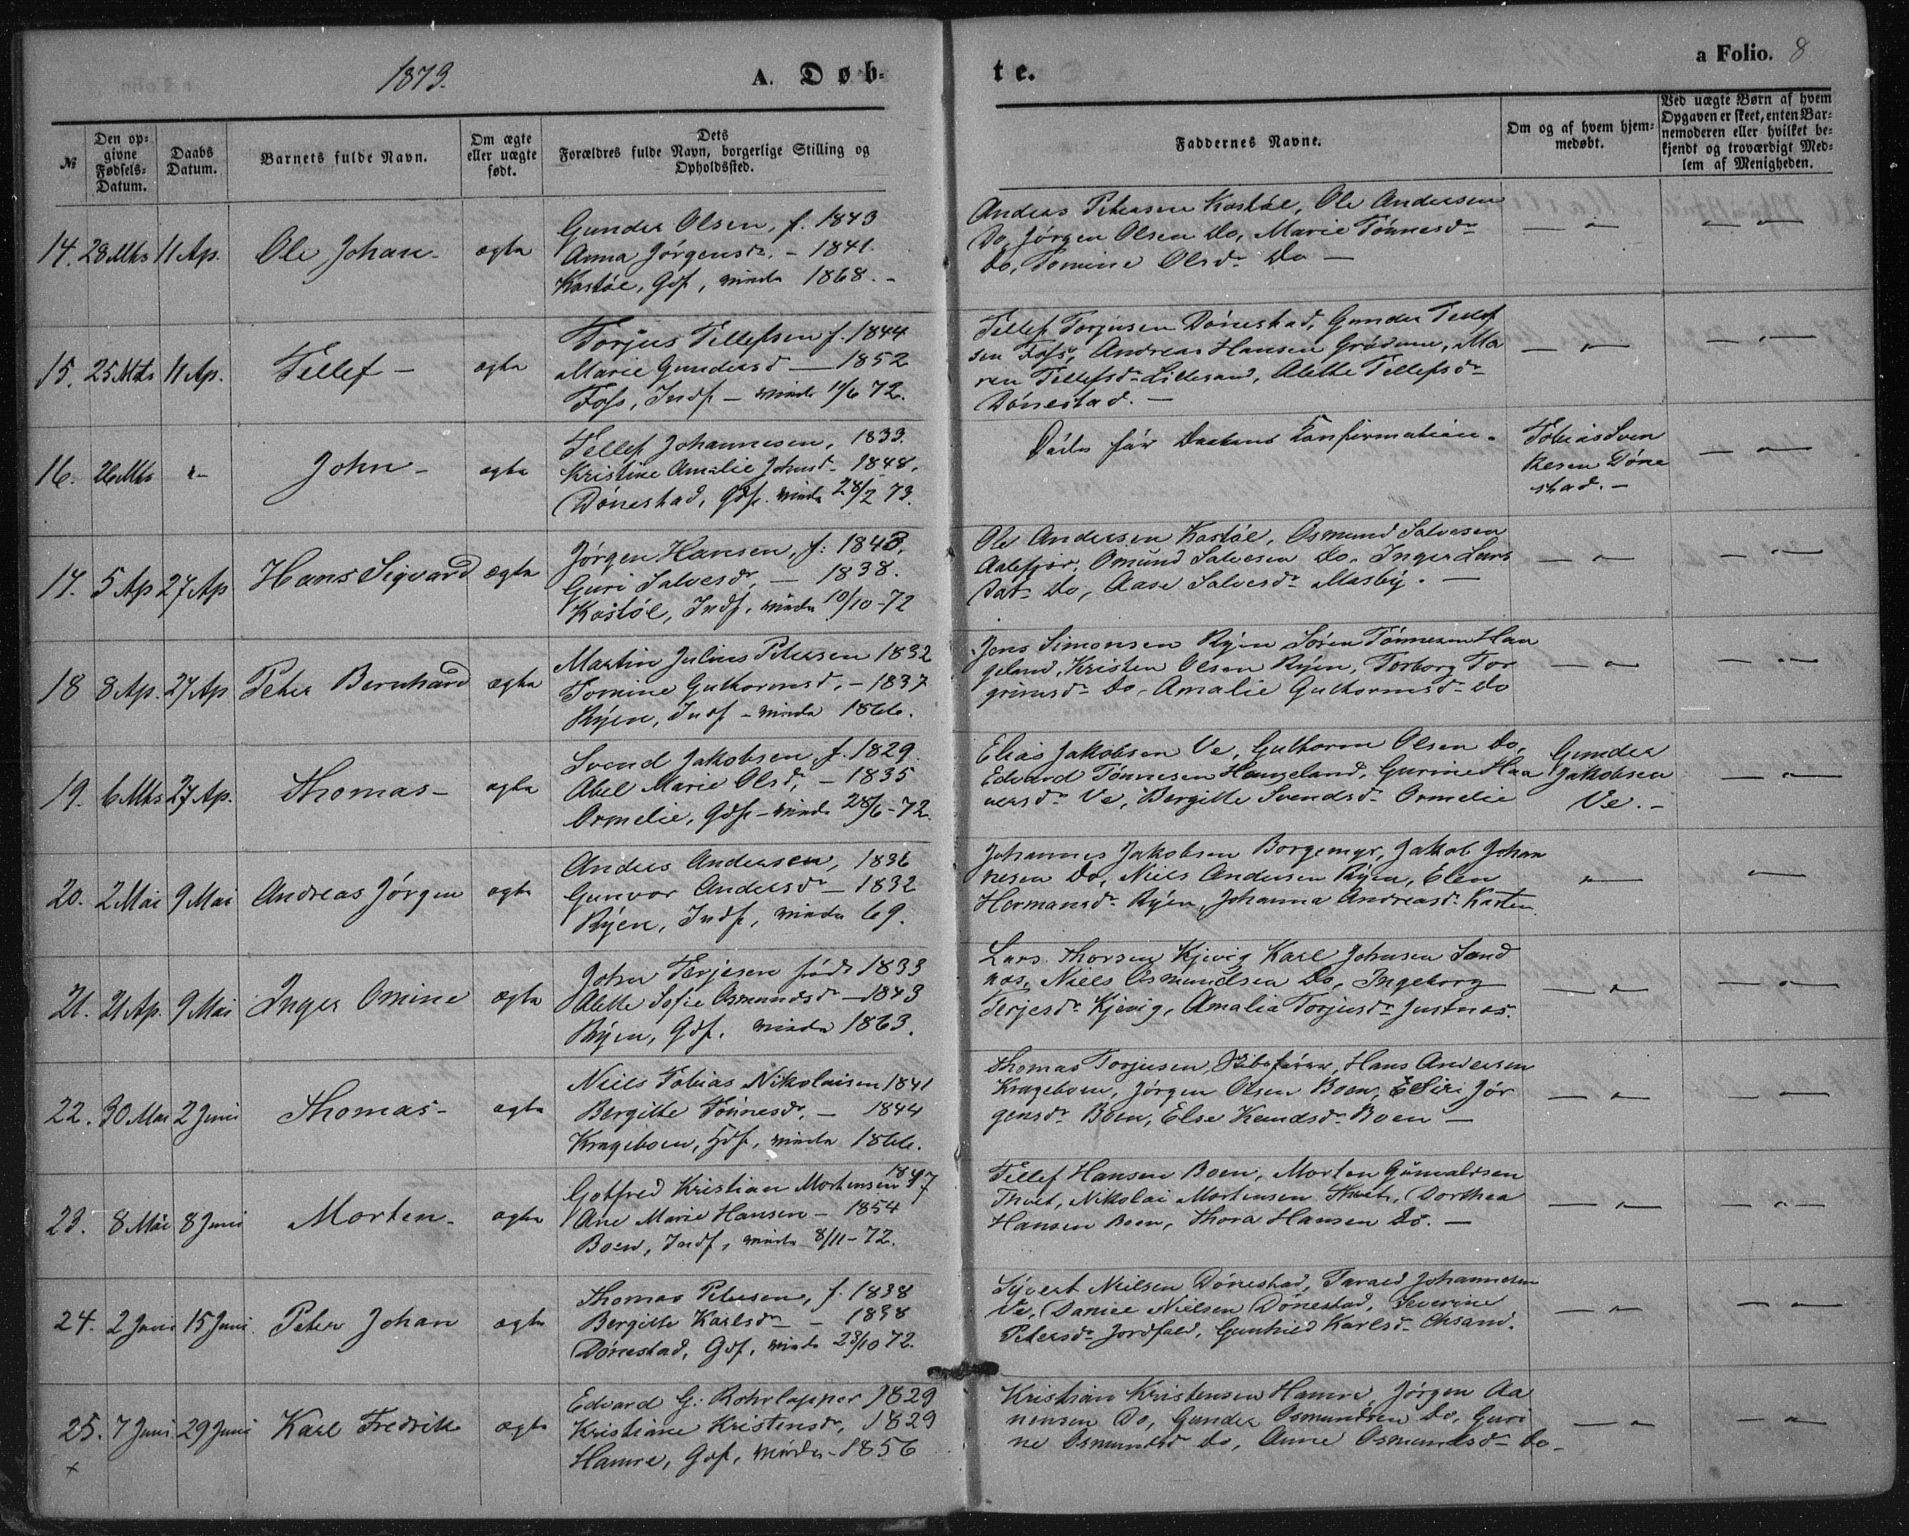 1873.
A. Døb-
te.
a Folio. 8
№
Den op-
givne
Fødsels-
Datum.
Daabs
Datum.
Barnets fulde Navn.
Om ægte
eller uægte
født.
Dets
Forældres fulde Navn, borgerlige Stilling og
Opholdssted.
Faddernes Navne.
Om og af hvem hjem-
medøbt.
Ved uægte Børn af hvem
Opgaven er skeet, enten Bar-
nemoderen eller hvilket be-
kjendt og troværdigt Med-
lem af Menigheden.
14. 28 Mts 11 Ap. Ole Johan - ægte
Gunder Olsen, f. 1843
Anna Jørgensdr. - 1841.
Kostøl, Gdf, viede 1868. -
Anders Petersen Kostøl, Ole Andersen
Do, Jørgen Olsen Do, Marie Tønnesdr
Do, Tomine Olsdr Do —
15. 25 Mts 11 Ap. Tellef - ægte
Torjus Tellefsen f. 1844
Marie Gundersd — 1852
Foss, Indf - viede 11/6 72.
Tellef Torjusen Dønestad, Gunder Tellef
sen Foss, Andreas Hansen Grødum, Ma
ren Tellefsdr Lillesand, Alette Tellefsdr
Dønestad. —
16. 26 Mts " John - ægte
Tellef Johannesen, 1833.
Kristine Amalie Johnsd - 1848.
Dønestad, Gdf. viede 28/2 73.
Døde før Daabens Confirmation.
Tobias Sven
kesen Døne
stad. —
17. 5 Ap 27 Ap Hans Sigvard ægte
Jørgen Hansen, f: 1843.
Guri Salvesdr, — 1838.
Kostøl, Indf, viede 10/10 - 72
Ole Andersen Kostøl, Osmund Salvesen
Aalefjær, Omund Salvesen Do, Inger Lars
dat Do, Aase Salvesdr Mosby. —
18 8 Ap. 27 Ap. Peter Bernhard ægte
Martin Julius Petersen 1832
Tomine Guthormsd. - 1837
Ryen, Indf - viede 1866.
Jens Simonsen Ryen Søren Tønnesen Hau
geland, Kristen Olsen Ryen, Torborg Tor
grimsdr Do, Amalie Guthormsdr Do
19. 6 Mts 27 Ap. Thomas - ægte
Svend Jakobsen, f. 1829.
Abel Marie Olsd, — 1835
Ormelie, Gdf - viede 28/6 - 72.
Elias Jakobsen Ve, Guthorm Olsen Do,
Edvard Tønnesen Haugeland, Gurine Haa
versdr Ve, Bergitte Svendsdr Ormelie
Gunder
Jakobsen
Ve. —
20. 2 Mai 9 Mai Andreas Jørgen ægte
Anders Andersen, 1836
Gunvor Andersdr — 1832
Ryen, Indf, viede 69.
Johannes Jakobsen Borgemyr, Jakob Johan
nesen Do, Niels Andersen Ryen, Elen
Hermansdr Ryen, Johanna Andreasdr Karten.
21. 21 Ap. 9 Mai Inger Omine ægte
John Terjesen født 1833
Alette Sofie Osmundsdr — 1843
Ryen, Gdf. viede 1863.
Lars Thorsen Kjevig Karl Johnsen Sand
nes, Niels Osmundsen Do, Ingeborg
Terjesdr Kjevig, Amalia Torjusdr Justnes.
22. 30 Mai 2 Juni Thomas - ægte
Niels Tobias Nikolaisen 1841
Bergitte Tønnesdr, — 1844
Krageboen, Gdf, viede 1866.
Thomas Torjusen, Skibsfører, Hans Andersen
Krageboen, Jørgen Olsen Boen, Jør
gensdr Boen, Else Knudsdr Boen —
23. 8 Mai 8 Juni Morten - ægte
Gotfred Kristian Mortensen 1847
Ane Marie Hansen - 1854
Boen, Indf, viede 8/11 - 72.
Tellef Hansen Boen, Morten Gunvaldsen
Tveit, Nikolai Mortensen Tveit, Dorthea
Hansen Boen, Thora Hansen Do. —
24. 2 Juni 15 Juni. Peter Johan ægte
Thomas Petersen, f. 1838
Bergitte Karlsdr — 1838
Dønestad, Gdf, viede 23/10 72.
Syvert Nielsen Dønestad, Tarald Johannesen
Ve, Daniel Nielsen Dønestad, Severine
Petersdr Jordfald, Gunhild Karlsdr Chsand.
25. 7 Juni 29 Juni Karl Fredrik ægte
Edvard G. Rohrlapper 1829
Kristiane Kristensdr, 1829
Hamre, Gdf, viede 1856
Kristian Kristensen Hamre, Jørgen Aa
nensen Do, Gunder Osmundsen Do, Guri
ne Osmundsd Do, Anne Osmundsdr Do -
+